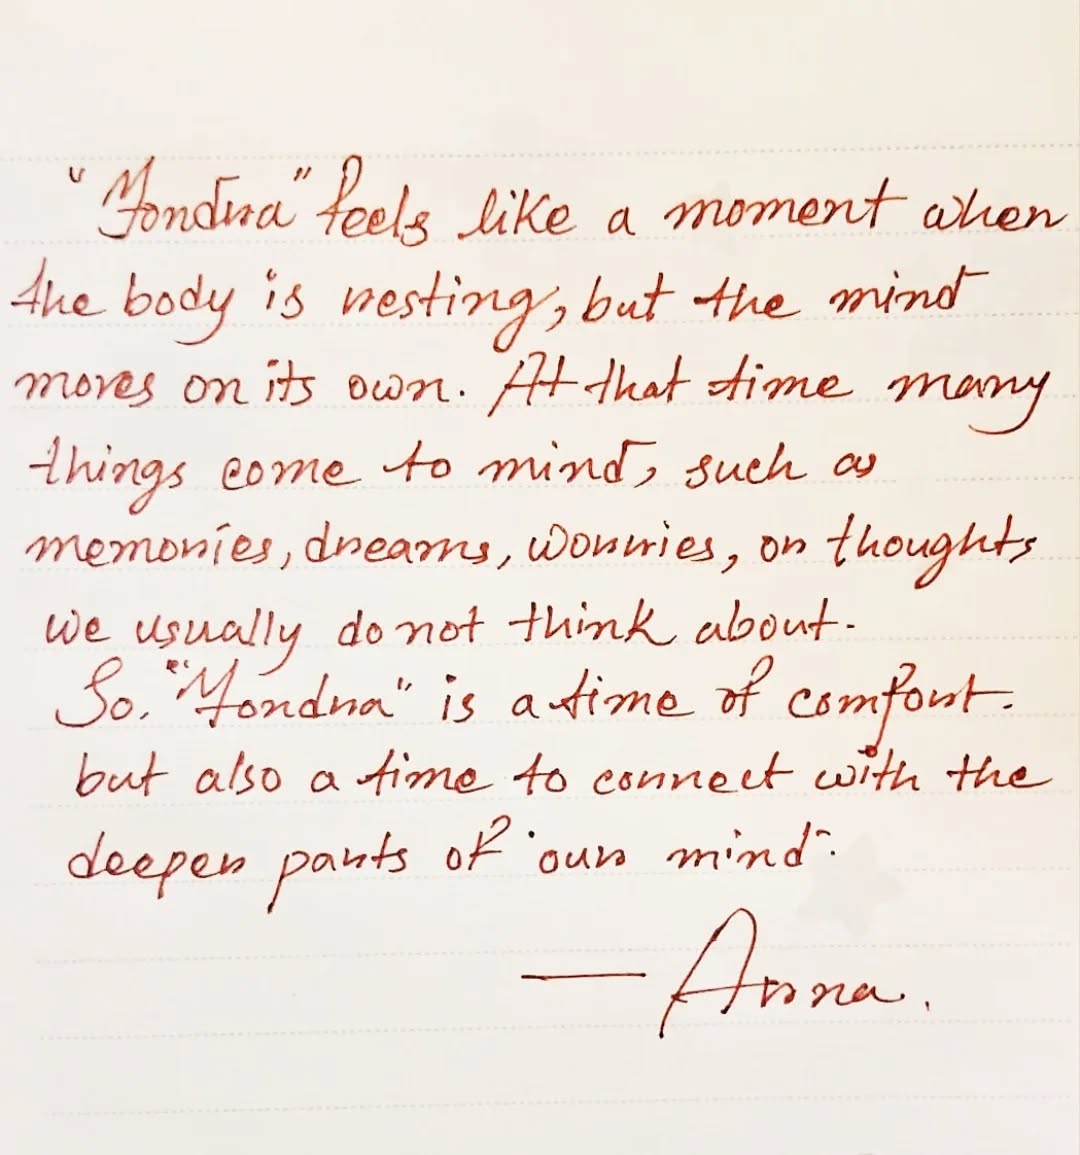 "Tondra" feels like a moment when
the body is resting, but the mind
moves on its own. At that time many
things come to mind, such as
memories, dreams, worries, or thoughts
we usually do not think about.
So. "Tondra" is a time of comfort.
but also a time to connect with the
deeper parts of our mind.
— Anna.